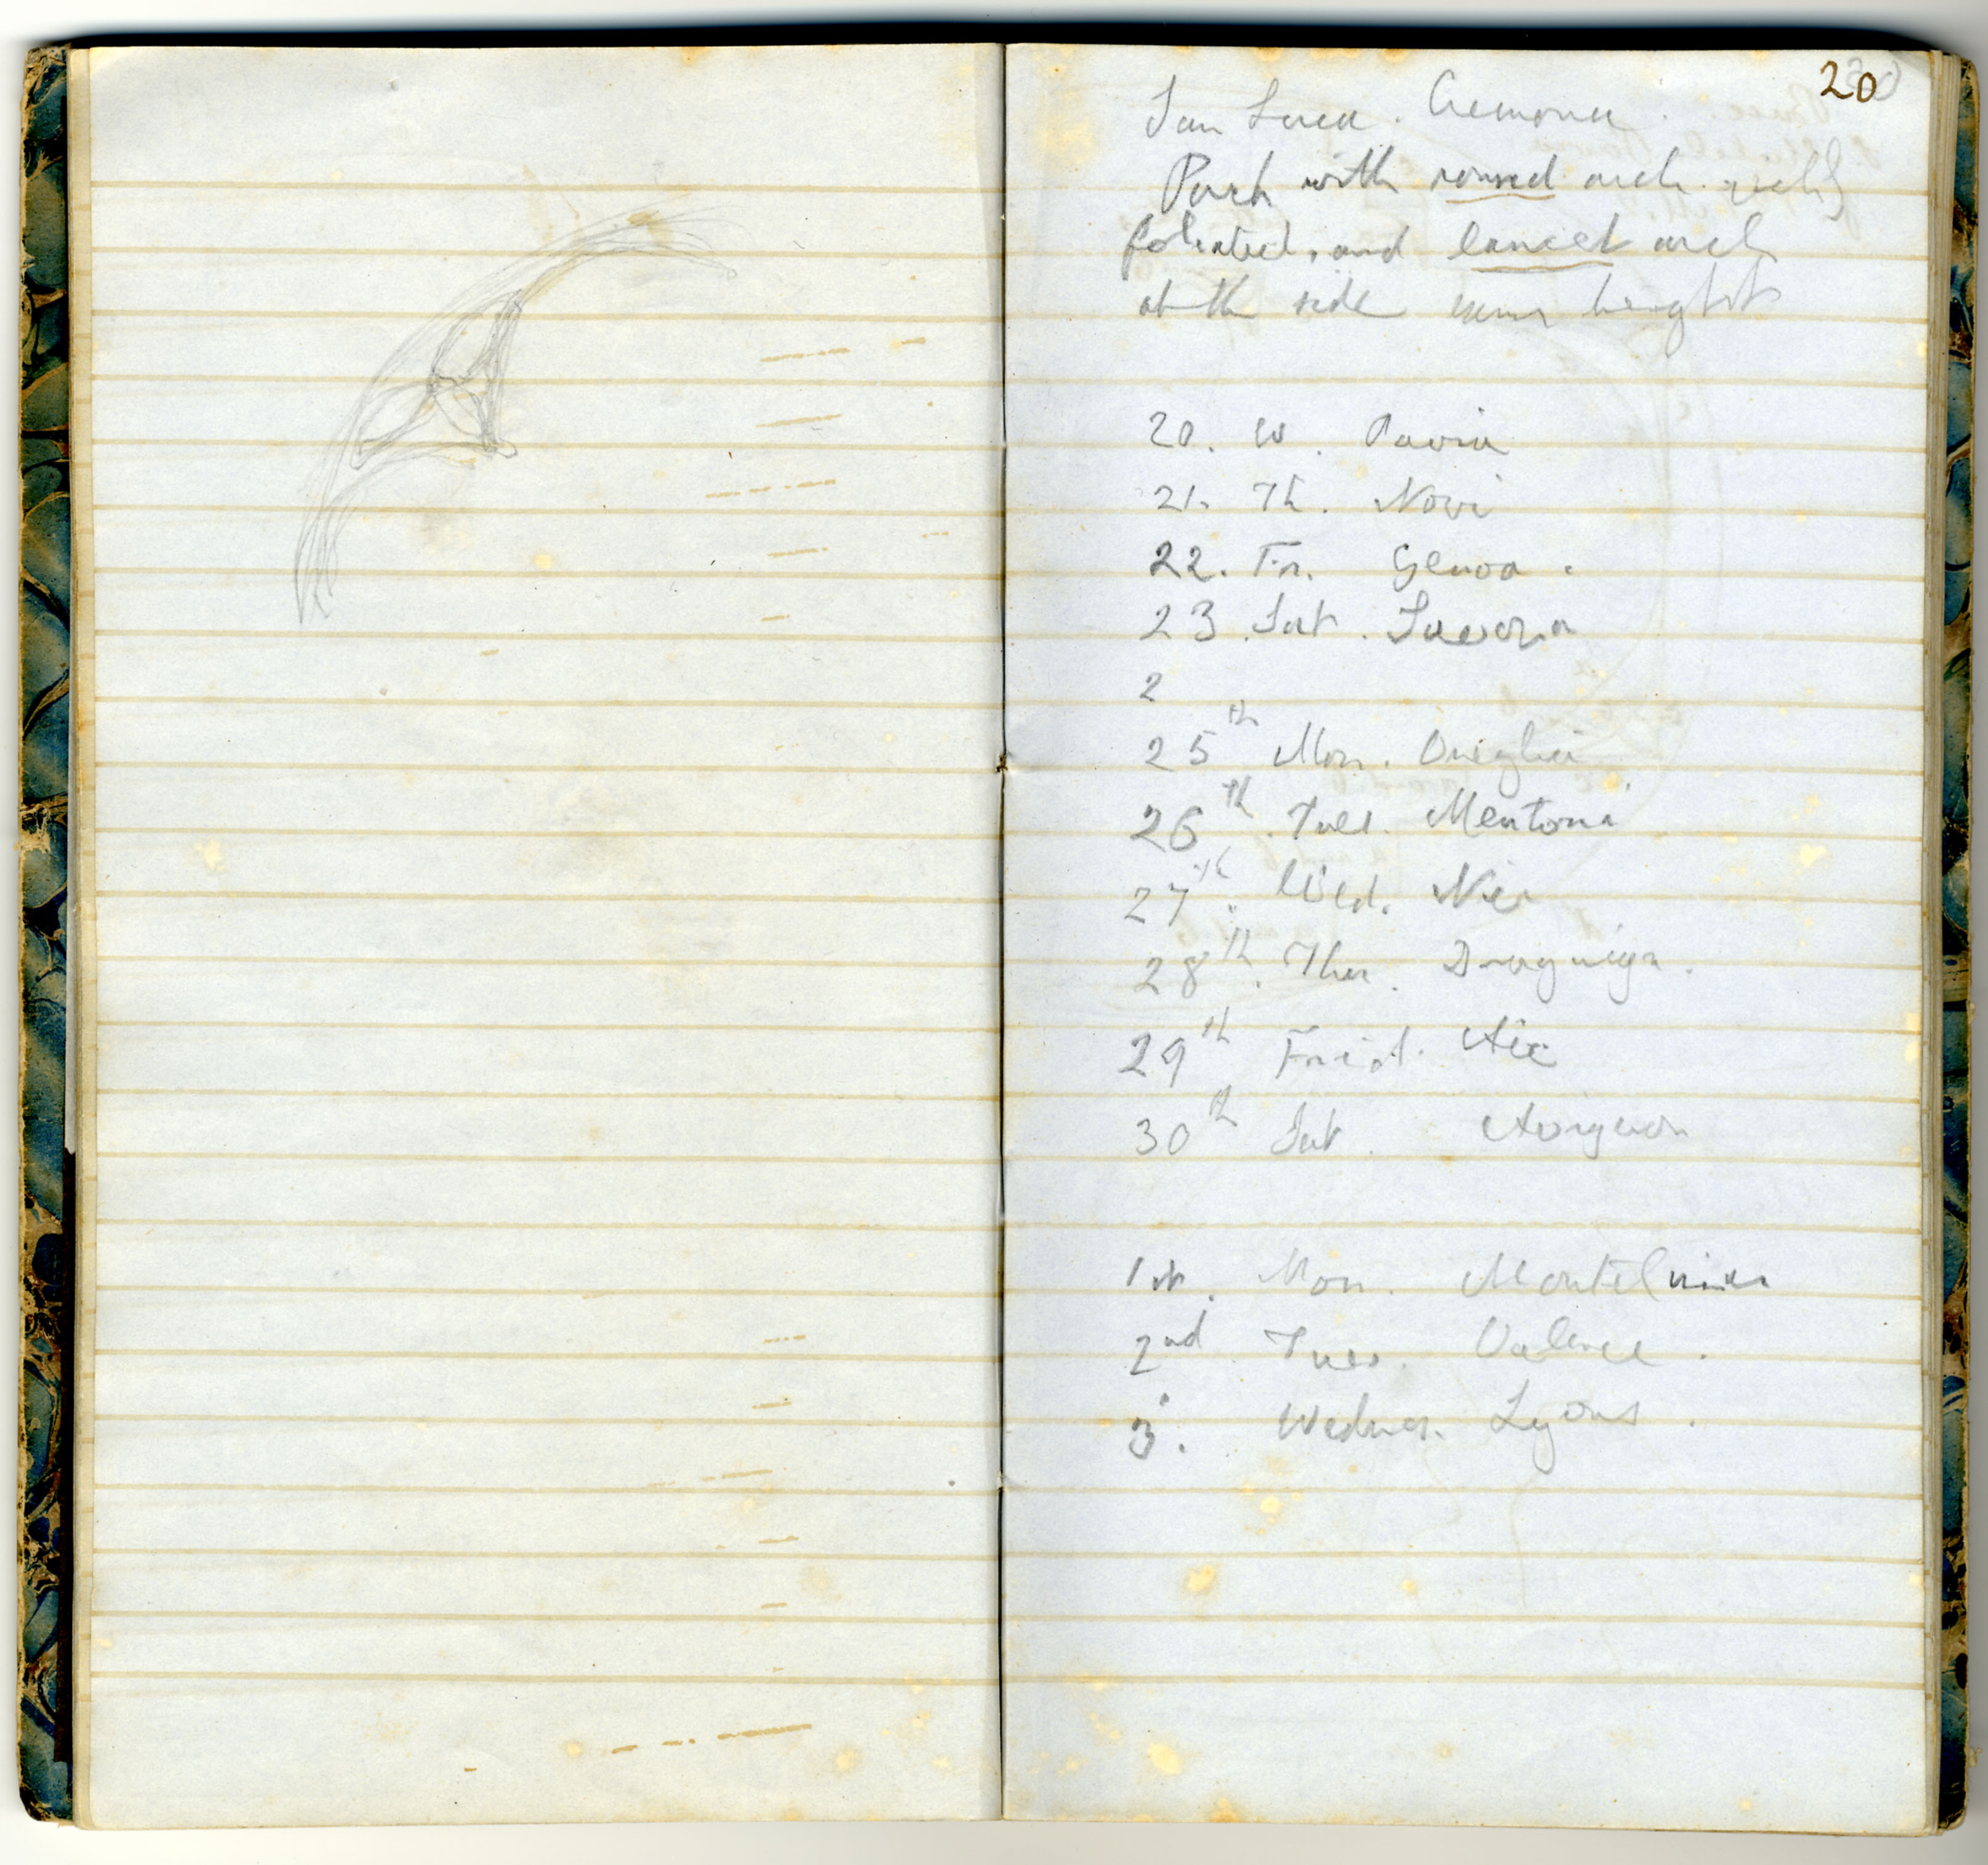 20
San Luca. Cremona.
Porch with round arch richly
foliated, and lancet arch
at the side same height
20. W. Pavia
21. Th. Novi
22. Fri. Genoa.
23. Sat. Savona
2
25th Mon. Oneglia
26th. Tues. Mentona
27th. Wed. Nice
28th. Thur. Draguign.
29th Frid. Aix
30th Sat. Avignon
1st. Mon. Montelimar
2nd. Tues. Valence.
3. Wednes. Lyons.